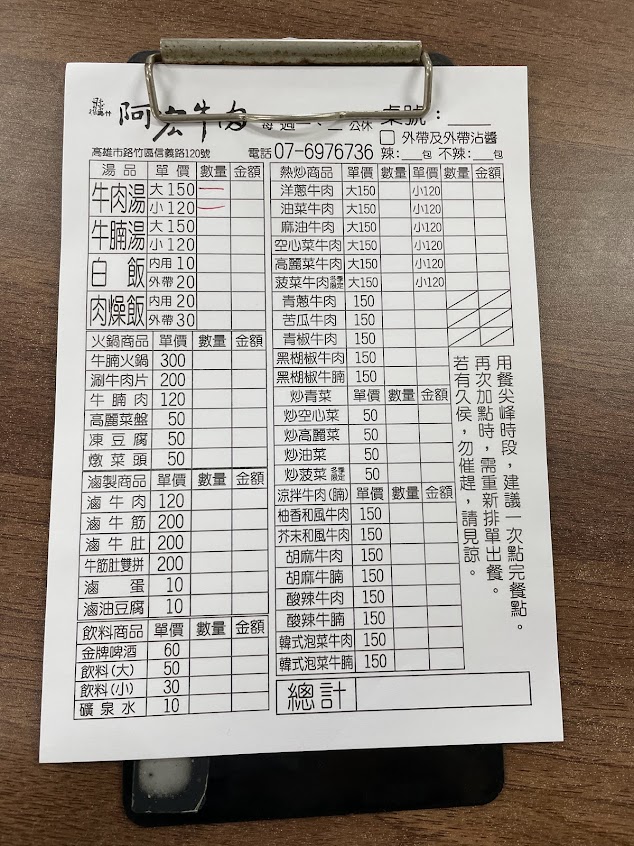 阿宏牛肉 每週一、二公休 桌號：
□ 外帶及外帶沾醬
高雄市路竹區信義路120號 電話 07-6976736 辣：__包 不辣：__包
湯品 單價 數量 金額
牛肉湯 大 150 一
小 120 一
牛腩湯 大 150
小 120
白飯 內用 10
外帶 20
肉燥飯 內用 20
外帶 30
火鍋商品 單價 數量 金額
牛腩火鍋 300
涮牛肉片 200
牛腩肉 200
高麗菜盤 50
凍豆腐 50
燉菜頭 50
滷製商品 單價 數量 金額
滷牛肉 120
滷牛筋 200
滷牛肚 200
牛筋肚雙拼 200
滷蛋 10
滷油豆腐 10
飲料商品 單價 數量 金額
金牌啤酒 60
飲料(大) 50
飲料(小) 30
礦泉水 10
熱炒商品 單價 數量 單價 數量 金額
洋蔥牛肉 大150 小120
油菜牛肉 大150 小120
麻油牛肉 大150 小120
空心菜牛肉 大150 小120
高麗菜牛肉 大150 小120
菠菜牛肉 冬季限定 大150 小120
青蔥牛肉 150
苦瓜牛肉 150
青椒牛肉 150
黑胡椒牛肉 150
黑胡椒牛腩 150
炒青菜 單價 數量 金額
炒空心菜 50
炒高麗菜 50
炒油菜 50
炒菠菜 冬季限定 50
涼拌牛肉(腩) 單價 數量 金額
柚香和風牛肉 150
芥末和風牛肉 150
胡麻牛肉 150
胡麻牛腩 150
酸辣牛肉 150
酸辣牛腩 150
韓式泡菜牛肉 150
韓式泡菜牛腩 150
總計
用餐尖峰時段，建議一次點完餐點。
再次加點時，需重新排單出餐。
若有久侯，勿催趕，請見諒。